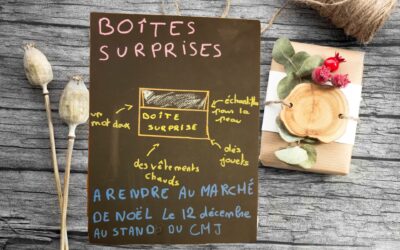 BOÎTES
SURPRISES
échantillon
pour la
peau
un
mot doux
BOÎTE
SURPRISE
des
jouets
des vêtements
chauds
A RENDRE AU MARCHÉ
DE NOËL Le 12 décembre
AU STAND DU CMJ